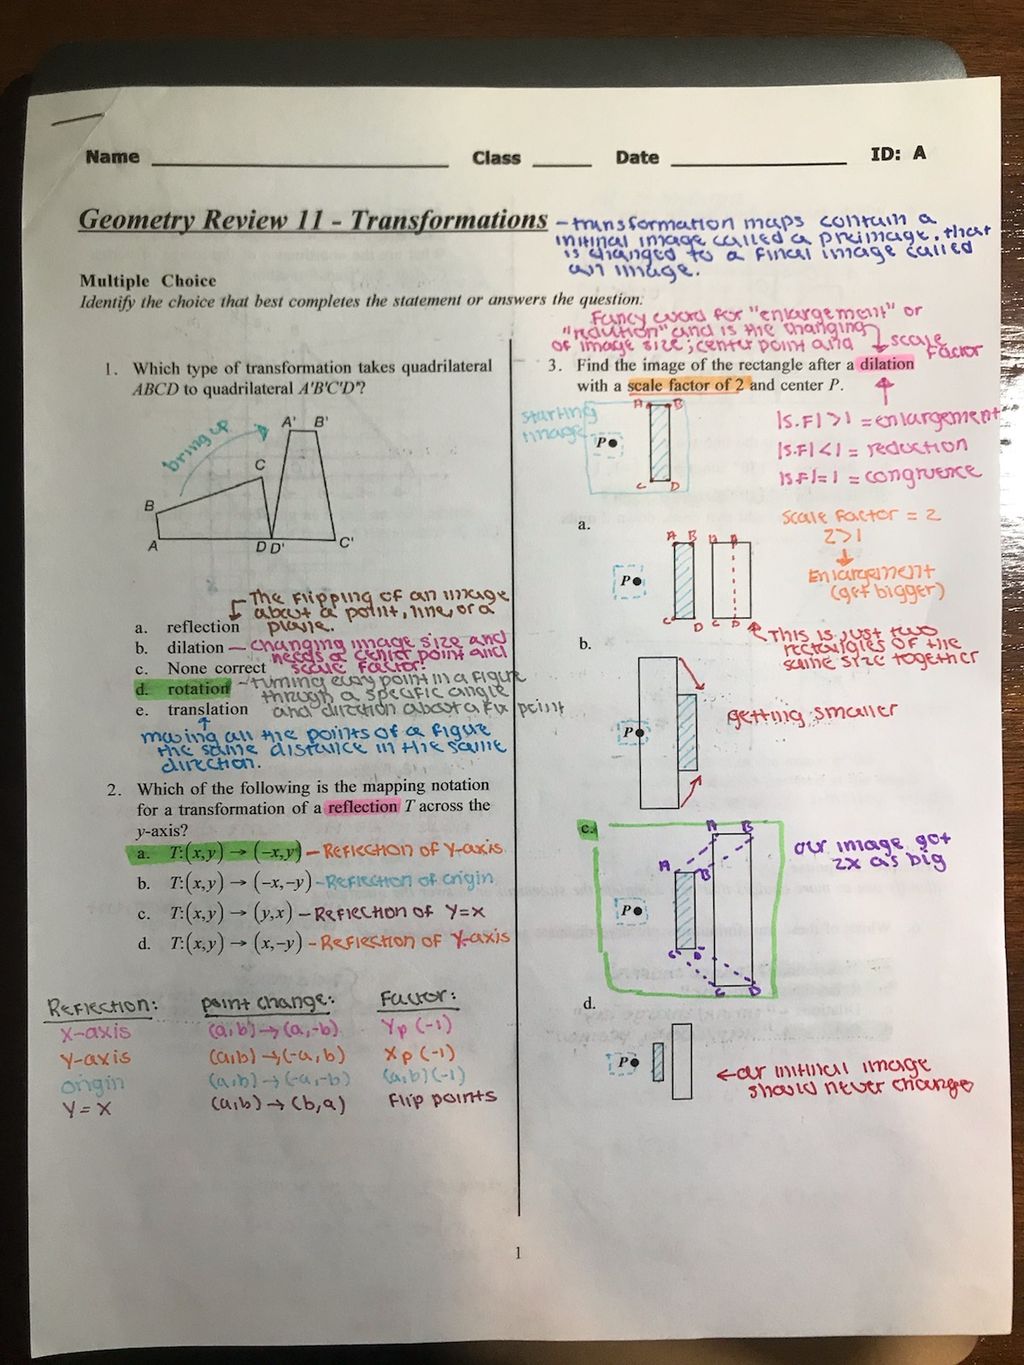 Name ____________ Class ______ Date ____________ ID: A
Geometry Review 11 - Transformations
-transformation maps contain a
initinal image called a preimage, that
is changed to a final image called
an image.
Multiple Choice
Identify the choice that best completes the statement or answers the question.
1. Which type of transformation takes quadrilateral
ABCD to quadrilateral A'B'C'D'?
bring up
A' B'
C
B
A D D' C'
The flipping of an image
about a point, line, or a
plane.
a. reflection
b. dilation - changing image size and
needs a center point and
scale factor.
c. None correct
d. rotation - turning every point in a figure
through a specific angle
and direction about a fix point
e. translation
moving all the points of a figure
the same distance in the same
direction.
2. Which of the following is the mapping notation
for a transformation of a reflection T across the
y-axis?
a. T:(x,y) → (-x,y) - Reflection of y-axis
b. T:(x,y) → (-x,-y) - Reflection of origin
c. T:(x,y) → (y,x) - Reflection of y=x
d. T:(x,y) → (x,-y) - Reflection of y-axis
Reflection: point change: Factor:
x-axis (a,b)→(a,-b) Yp (-1)
y-axis (a,b)→(-a,b) Xp (-1)
origin (a,b)→(-a,-b) (a,b)(-1)
y=x (a,b)→(b,a) flip points
Fancy word for "enlargement" or
"redution" and is the changing
of image size; center point and scale
factor
3. Find the image of the rectangle after a dilation
with a scale factor of 2 and center P.
starting
image
A B
P
C D
|s.F|>1 = enlargement
|s.F|<1 = reduction
|s.F|=1 = congruence
scale factor = 2
2>1
Enlargement
(get bigger)
a.
A B
P
C D
This is just two
rectangles of the
same size together
b.
P
getting smaller
c.
A B
A B
P
C D
C D
our image got
2x as big
d.
P
our initinal image
should never change
1